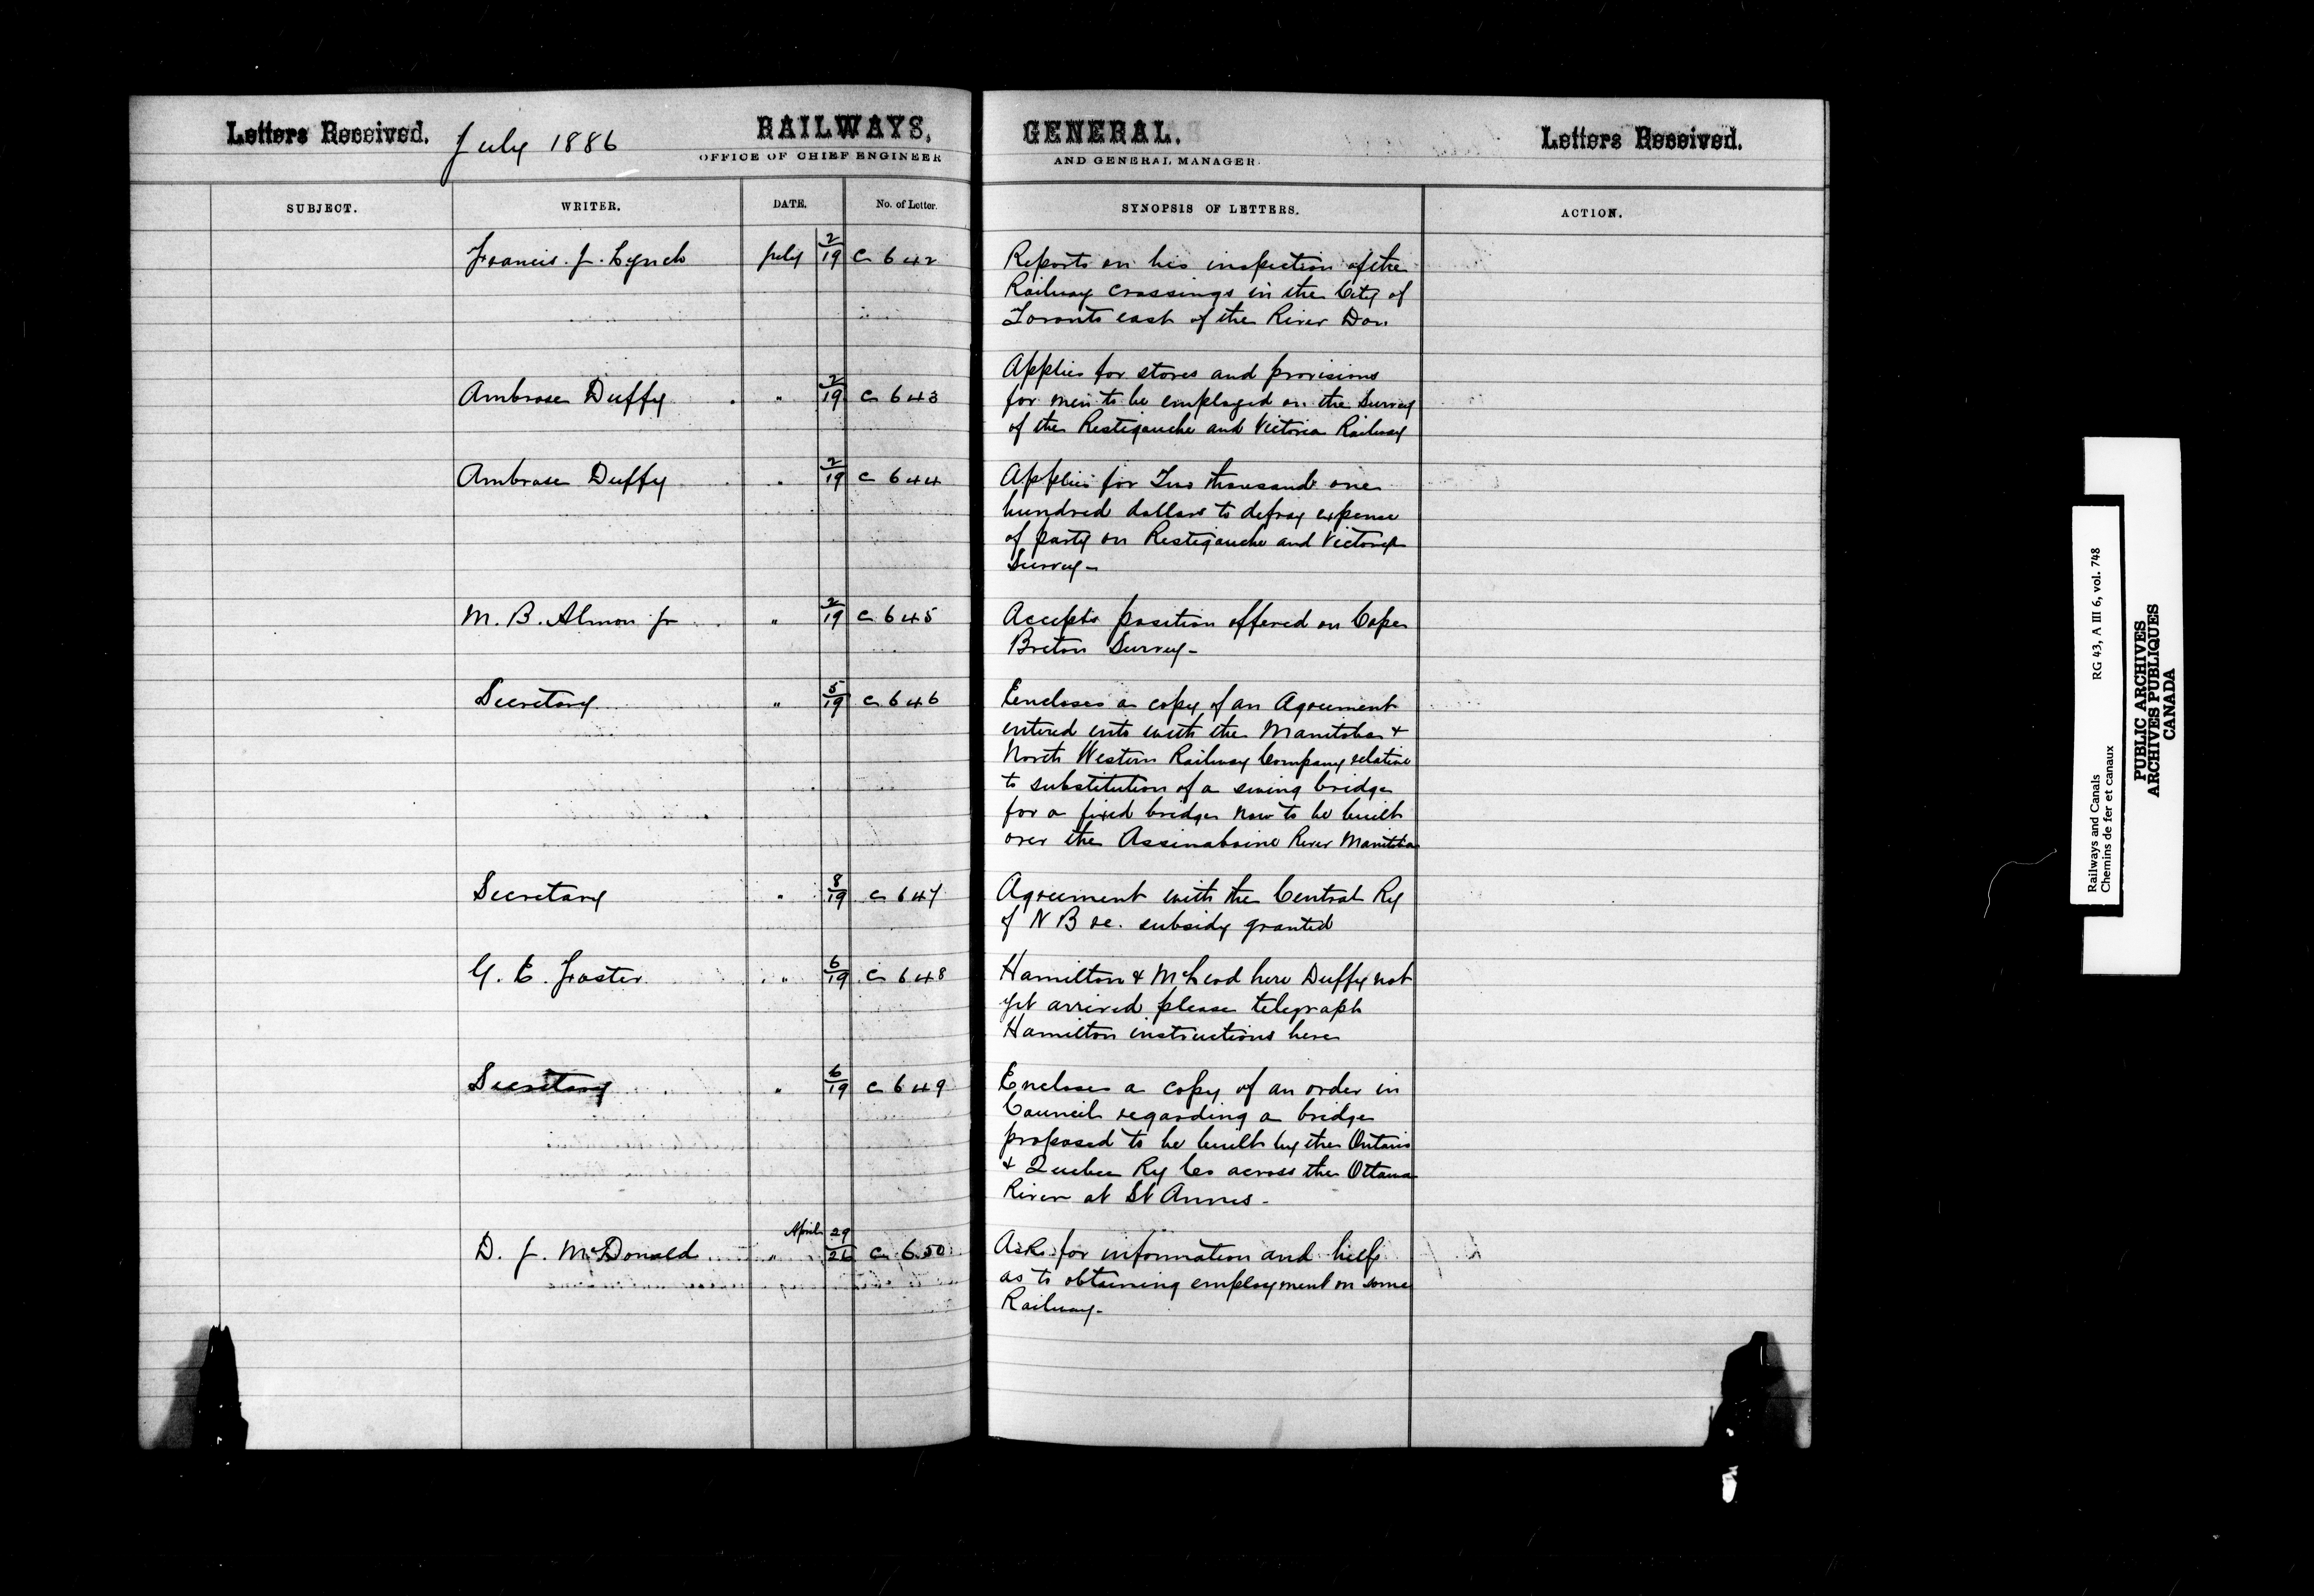 Letters Received. July 1886 RAILWAYS, GENERAL. Letters Received.
OFFICE OF CHIEF ENGINEER AND GENERAL MANAGER.
SUBJECT. WRITER. DATE. No. of Letter. SYNOPSIS OF LETTERS. ACTION.
Francis. J. Lynch July 2/19 C 642 Reports on his inspection of the
Railway crossings in the City of
Toronto east of the River Don.
Applies for stores and provisions
Ambrose Duffy " 2/19 C 643 for men to be employed on the Survey
of the Restigouche and Victoria Railway
Ambrose Duffy " 2/19 C 644 Applies for Two thousand one
hundred dollars to defray expense
of party on Restigouche and Victoria
Survey-
M. B. Almon Jr " 2/19 C 645 Accepts position offered on Cape
Breton Survey-
Secretary " 5/19 C 646 Encloses a copy of an Agreement
entered into with the Manitoba &
North Western Railway Company relative
to substitution of a swing bridge
for a fixed bridge now to be built
over the Assinaboine River Manitoba
Secretary " 8/19 C 647 Agreement with the Central Ry
of N B re. subsidy granted
G. E. Foster " 6/19 C 648 Hamilton & McLeod here Duffy not
yet arrived please telegraph
Hamilton instructions here
Secretary " 6/19 C 649 Encloses a copy of an order in
Council regarding a bridge
proposed to be built by the Ontario
& Quebec Ry Co across the Ottawa
River at St Annes-
April 29
D. J. McDonald " 26 C 650 Asks for information and help
as to obtaining employment on some
Railway-
Railways and Canals RG 43, A III 6, vol. 748
Chemins de fer et canaux
PUBLIC ARCHIVES
ARCHIVES PUBLIQUES
CANADA